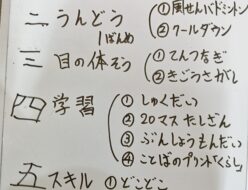 二 うんどう
1ばんめ
① 風せんバドミントン
② クールダウン
三 目の体そう
① てんつなぎ
② きごうさがし
四 学習
① しゅくだい
② 20マスたしざん
③ ぶんしょうもんだい
④ ことばのプリント「くらし」
五 スキル
① どこどこ